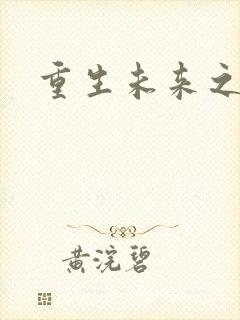 重生未来之
黄浣碧